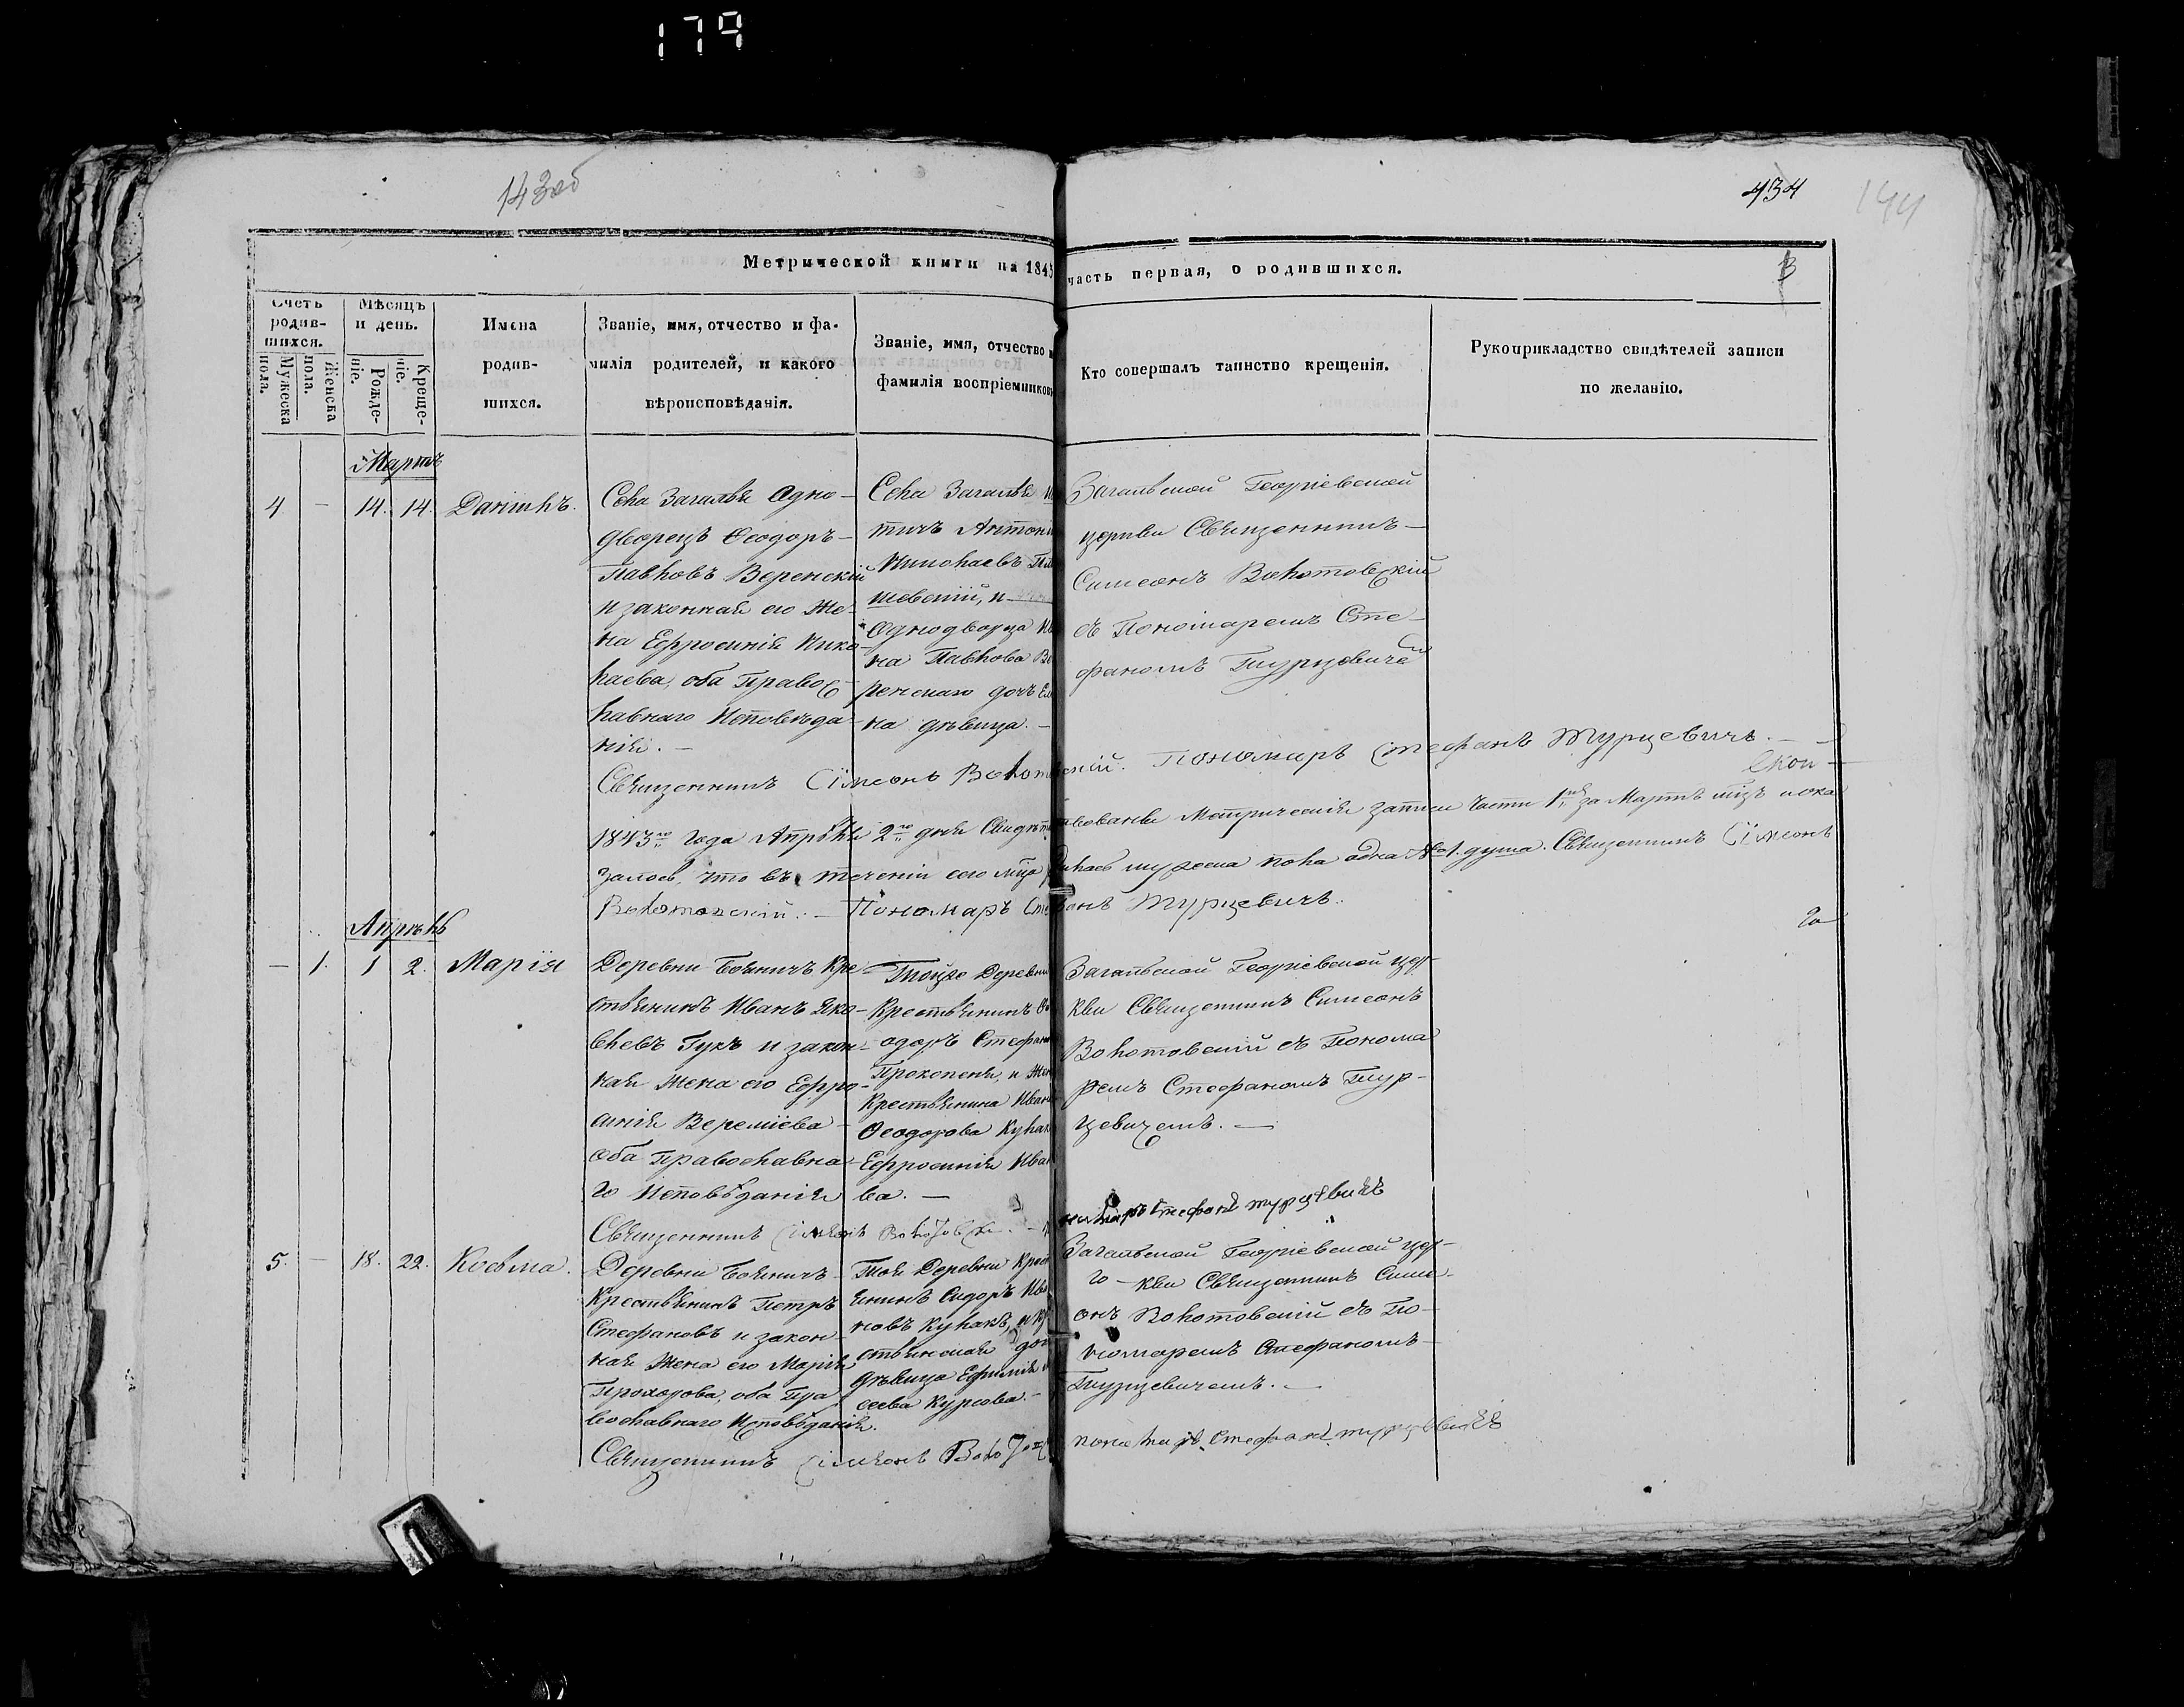 179
143 об
434
144
Метрической книги на 1843
часть первая, о родившихся.
Счетъ родив-
шихся.
Мужеска пола.
Женска пола.
Мѣсяцъ
и день.
Рожде-
ніе.
Креще-
ніе.
Имена
родив-
шихся.
Званіе, имя, отчество и фа-
милія родителей, и какого
вѣроисповѣданія.
Званіе, имя, отчество и
фамилія воспріемниковъ
Кто совершалъ таинство крещенія.
Рукоприкладство свидѣтелей записи
по желанію.
Мартъ
4. — 14. 14. Даніилъ.
Села Загалья Одно-
дворецъ Ѳеодоръ
Павловъ Веренскій
и законная его Же-
на Ефросинія Нико-
лаева, оба Правос-
лавнаго Исповѣда-
нія. —
Села Загалья
Антоній
Николаевъ
шевскій, и
Однодворца
на Павлова Ве
ренскаго дочь Еле
на дѣвица. —
Загальской Георгіевской
церкви Священникъ
Симеонъ Волотовскій
съ Пономаремъ Сте-
фаномъ Турцевичем
Священникъ Сімеонъ Волотовскій. Пономаръ Стефанъ Турцевичъ. —
1843го года Апрѣля 2го дня Свидѣтельствованы Метрическія записи части 1й за Мартъ мцъ и ока
залось, что въ теченіи сего мца мужеска пола одна № 1. душа. Священникъ Сімеонъ
Волотовскій. — Пономаръ Стефанъ Турцевичъ.
Апрѣль
— 1. 1 2. Марія
Деревни Бояничъ Кре
стьянинъ Иванъ Яко-
влевъ Гукъ и закон-
ная Жена его Ефро-
синія Веремѣева
оба Православна-
го Исповѣданія
Тойже Деревни
Крестьянинъ Ѳе
одоръ Стефан
Прокопеня, и Жен
Крестьянина Иван
Ѳеодорова Кулак
Ефросинія Ива
ва. —
Загальской Георгіевской цер-
кви Священникъ Симеонъ
Волотовскій съ Понома
ремъ Стефаномъ Тур-
цевичемъ. —
Священникъ Сімеонъ Волотовскі
Стефанъ турцевичъ
5. — 18. 22. Косьма.
Деревни Бояничъ
Крестьянинъ Петръ
Стефановъ и закон-
ная Жена его Марія
Прохорова, оба Пра
вославнаго Исповѣданія.
Тоя Деревни Крест
янинъ Сидоръ Ива
новъ Кулакъ, и Кре
стьянская доч
дѣвица Ефимія
сеева Курсова. —
Загальской Георгіевской цер-
кви Священникъ Симе-
онъ Волотовскій съ По-
номаремъ Стефаномъ
Турцевичемъ. —
Священникъ Сімеонъ
пономаръ Стефанъ турцевичъ